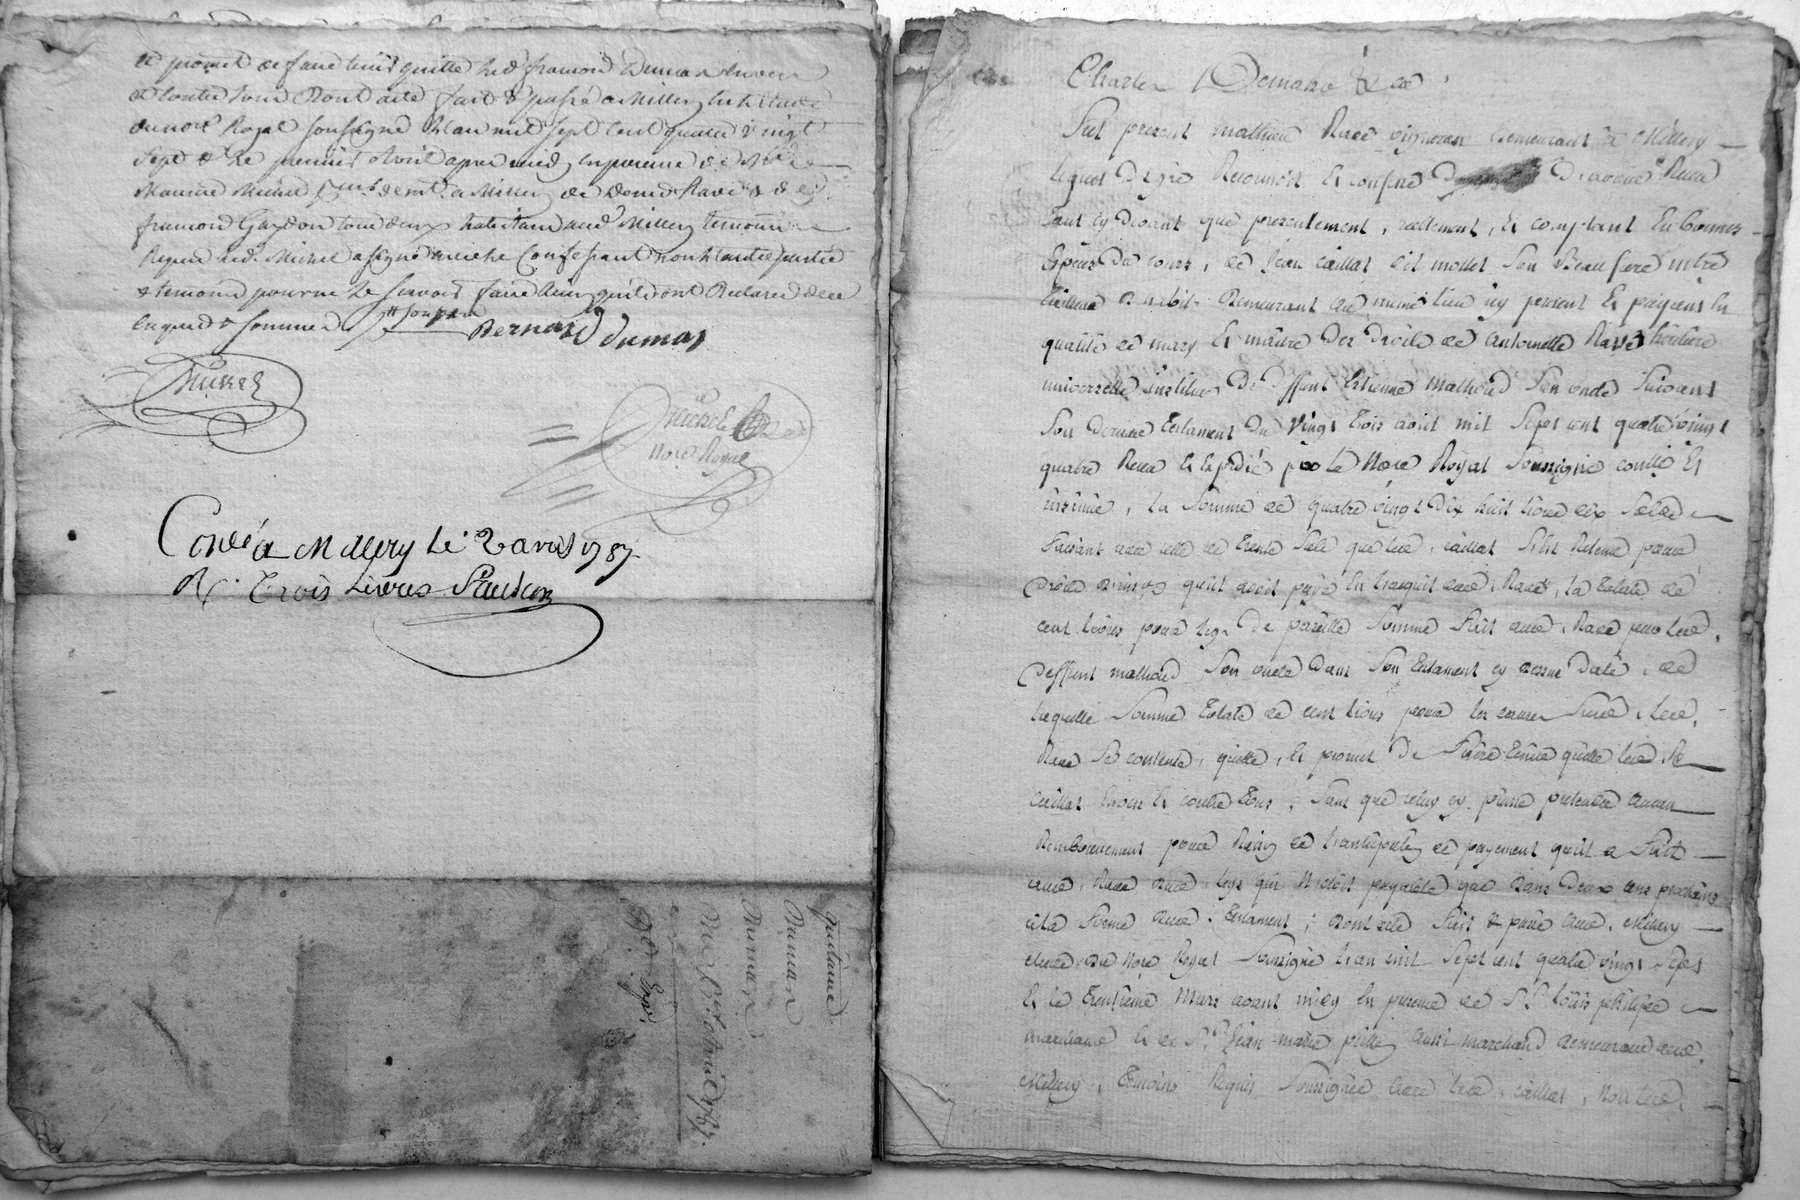 et promet de faire tenir quitte led françois Dumas envers
et contre tous Dont acte fait & passé a Millery en l'étude
du no.re Royal soussigné l'an mil sept cent quatre vingt
sept & le premier avril apres midy en presence de
Maurice Michel demt a Millery de Denis Ravé & de
françois Gaydon tous deux habitans aud Millery temoins
Requis led. Michel a signé non led partie
& temoins pour ne le scavoir faire ainsy qu'ils ont Declaré de ce
enquis & sommés
Bernard dumas
Michel
Michel
Nore Royal
Con.lé a Millery le 2 avril 1787
R. Trois Livres
quittance
Dumas
Dumas
Du p.er avril 1787.
Exp.
Charles Demaire &ca
fut present mathieu Ravé vigneron demeurant a Millery
lequel De gré Reconnoit Et confesse D'avoir Receu
tant cy devant que presentement, reellement, Et comptant En bonnes
Especes du cours, de jean caillat dit mollet son Beaufrere
Demeurant au meme lieu icy present Et payant En
qualité de mary Et maitre Des Droits de antoinette Ravé heritiere
universelle instituée De deffunt Estienne mathoud son oncle suivant
son dernier testament Du vingt trois aout mil sept cent quatre vingt
quatre Receu Et Expedié par le Nore Royal soussigné controllé Et
insinué, la somme de quatre vingt Dix huit livres dix sols
faisant avec celle de trente sols que led. caillat s'est Retenu pour
qu'il avoit payé En l'acquit dud. Ravé, la totale de
cent livres pour legs De pareille somme fait aud. Ravé par led.
deffunt mathoud son oncle dans son testament cy dessus daté, de
laquelle somme totale de cent livres pour les causes susd. led.
Ravé se contente, quitte, Et promet De faire tenir quitte led.
caillat Envers Et contre tous, sans que celuy cy puisse pretendre aucun
Remboursement pour Raison de l'anticipation de payement qu'il a fait
aud. Ravé dud. legs qui N'etoit payable que Dans Deux ans prochains
a la forme dud. testament; Dont acte fait & passé aud. Millery
etude du Nore Royal soussigné l'an mil sept cent quatre vingt sept
Et le trentieme Mars avant midy En presence de Sr. Louis philipe
marchand Et de Sr. jean marie pitiot aussi marchand demeurant aud.
Millery, temoins Requis soussignés avec led. caillat, non led.